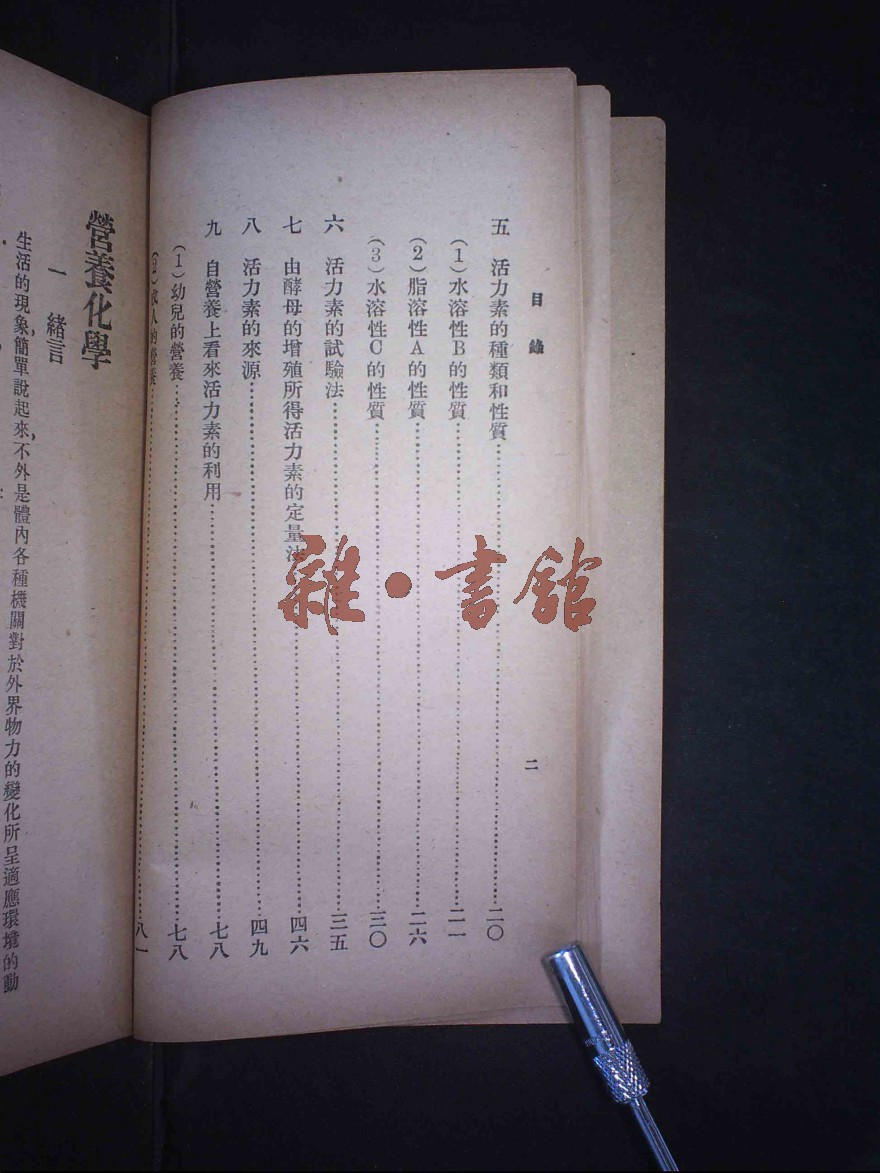 目錄
二
五 活力素的種類和性質……二〇
（1）水溶性B的性質……二一
（2）脂溶性A的性質……二六
（3）水溶性C的性質……三〇
六 活力素的試驗法……三五
七 由酵母的增殖所得活力素的定量法……四六
八 活力素的來源……四九
九 自營養上看來活力素的利用……七八
（1）幼兒的營養……七八
（2）成人的營養……八一
營養化學
一 緒言
生活的現象，簡單說起來，不外是體內各種機關對於外界物力的變化所呈適應環境的動
雜·書館